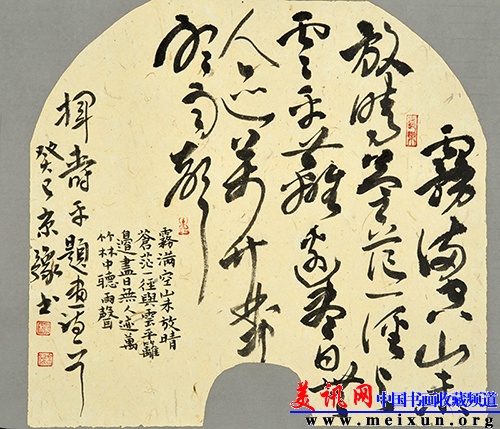 霧滿空山未
放晴蒼茫一徑与
雲平籬邊盡日無
人迹萬竹林中
聽雨聲
霧滿空山未放晴
蒼茫一徑與雲平籬
邊盡日無人迹萬
竹林中聽雨聲
惲壽平題畫詩一首
癸巳京豫书
美讯网 中国书画收藏频道
www.meixun.org